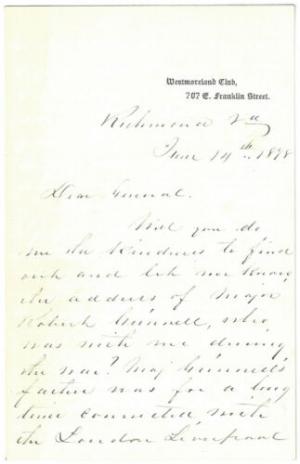 Westmoreland Club,
707 E. Franklin Street.
Richmond Va
June 14th 1898
Dear General.
Will you do
me the kindness to find
out and let me know
the address of Major
Robert Gunnell, who
was with me during
the war? Maj Gunnell's
father was for a long
time connected with
the London Liverpool